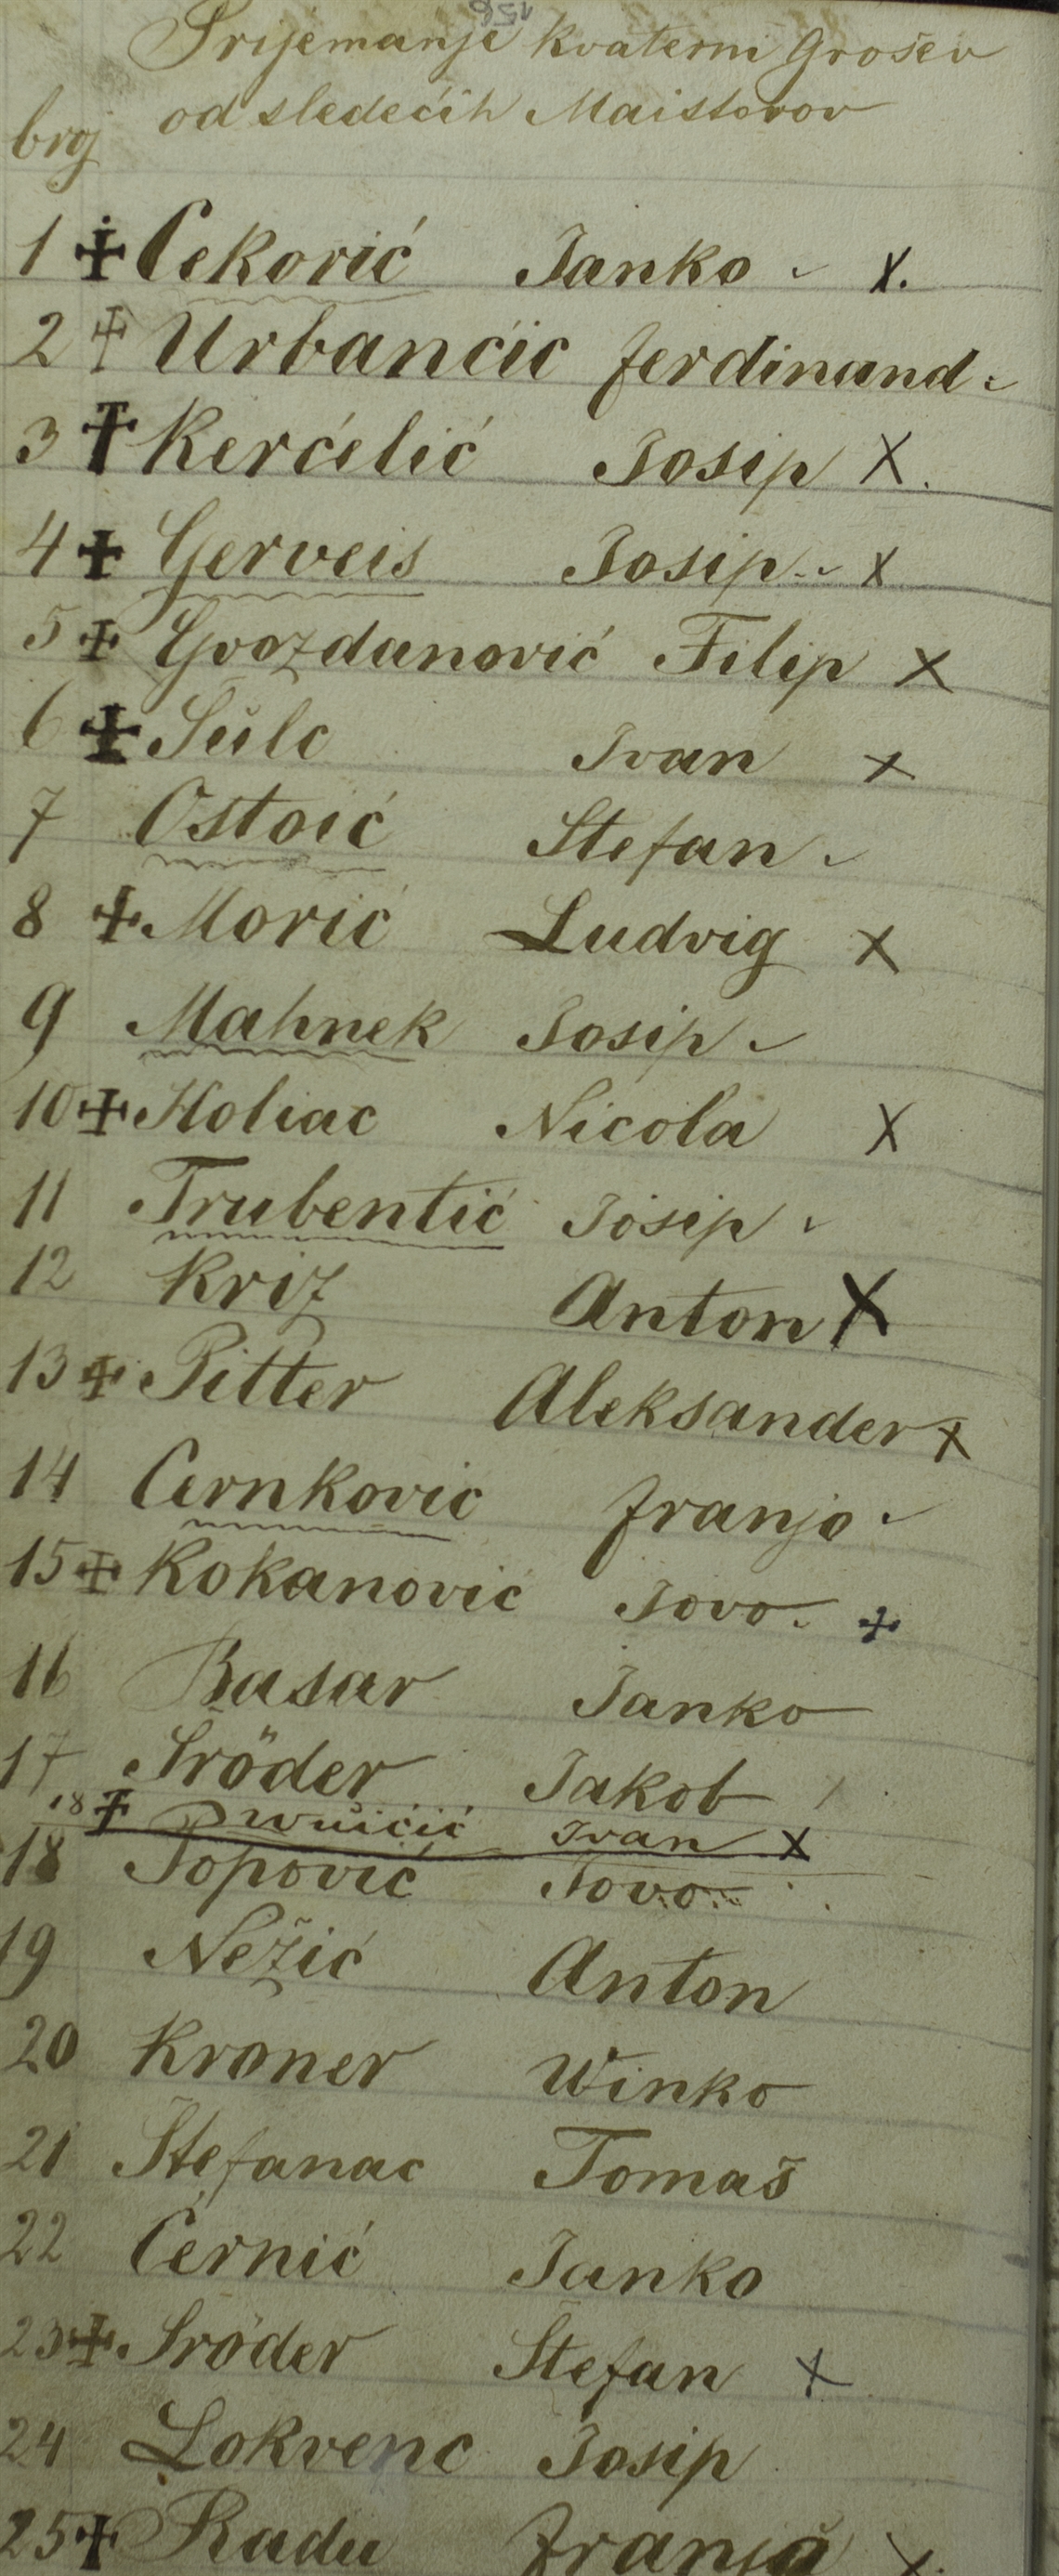 156
Prijemanje kvaterni Grošev
od sledećih Maistorov
broj
1 ✠ Cekorić Janko X.
2 ✠ Urbancić Ferdinand
3 ✝ Kerćelić Josip X.
4 ✠ Gerveis Josip X
5 ✠ Gvozdanović Filip X
6 ✠ Šulc Ivan X
7 Ostoić Stefan
8 ✠ Morić Ludvig X
9 Mahnek Josip
10 ✠ Holiac Nicola X
11 Trubentić Josip
12 Kriz Anton X
13 ✠ Pitter Aleksander X
14 Cernković Franjo
15 ✠ Kokanović Jovo ✠
16 Basar Janko
17 Šröder Jakob
18 ✝ Ivan X
18 Popović Jovo
19 Nežić Anton
20 Kroner Winko
21 Stefanac Tomaš
22 Cernić Janko
23 ✠ Šröder Stefan X
24 Lokvenc Josip
25 ✝ Radu Franja X.